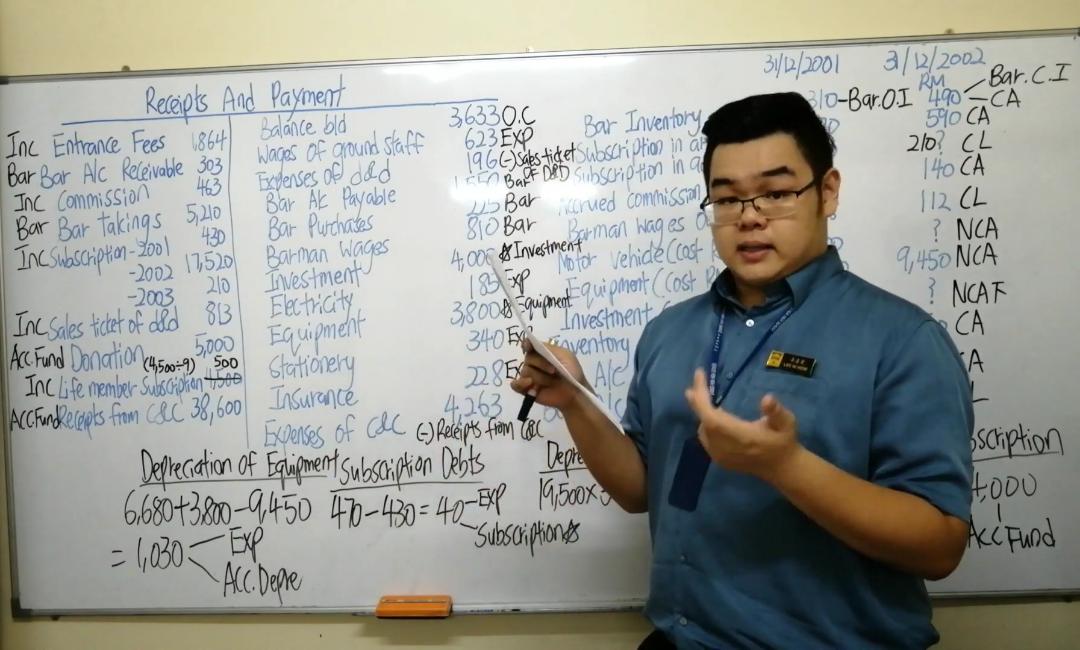 31/12/2001 31/12/2002
Receipts And Payment
RM
Bar.C.I
Inc Entrance Fees 1,864
Balance b/d 3,633 O.C
Bar Inventory 310-Bar.O.I 490 CA
Bar Bar A/c Receivable 303
Wages of ground staff 623 Exp
Subscription in 590 CA
Inc Commission 463
Expenses of d&d 196 (-) Sales ticket OF D&D
Subscription in 210? CL
Bar Bar Takings 5,210
Bar A/c Payable 1,550 Bar
Accrued commission 140 CA
Inc Subscription-2001 430
Bar Purchases 225 Bar
Barman Wages 112 CL
-2002 17,520
Barman Wages 810 Bar
Motor vehicle (Cost ? NCA
-2003 210
Investment 4,000 ☆ Investment
Equipment (Cost 9,450 NCA
Inc Sales ticket of d&d 813
Electricity 185 Exp
Investment ? NCA F
Acc.Fund Donation 5,000
Equipment 3,800 ☆ Equipment
Inventory CA
(4,500÷9) 500
Inc Life member Subscription 4,500
Stationery 340 Exp
A/c
Acc Fund Receipts from C&C 38,600
Insurance 228
Expenses of C&C 4,263
(-) Receipts from C&C
Depreciation of Equipment
6,680+3,800-9,450
= 1,030
Exp
Acc.Depre
Subscription Debts
470-430=40
Exp
Subscription☆
Depre
19,500×
scription
4,000
Acc Fund